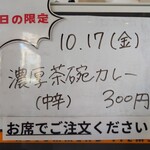 日の限定
10.17(金)
濃厚茶碗カレー
(中辛) 300円
お席でご注文ください